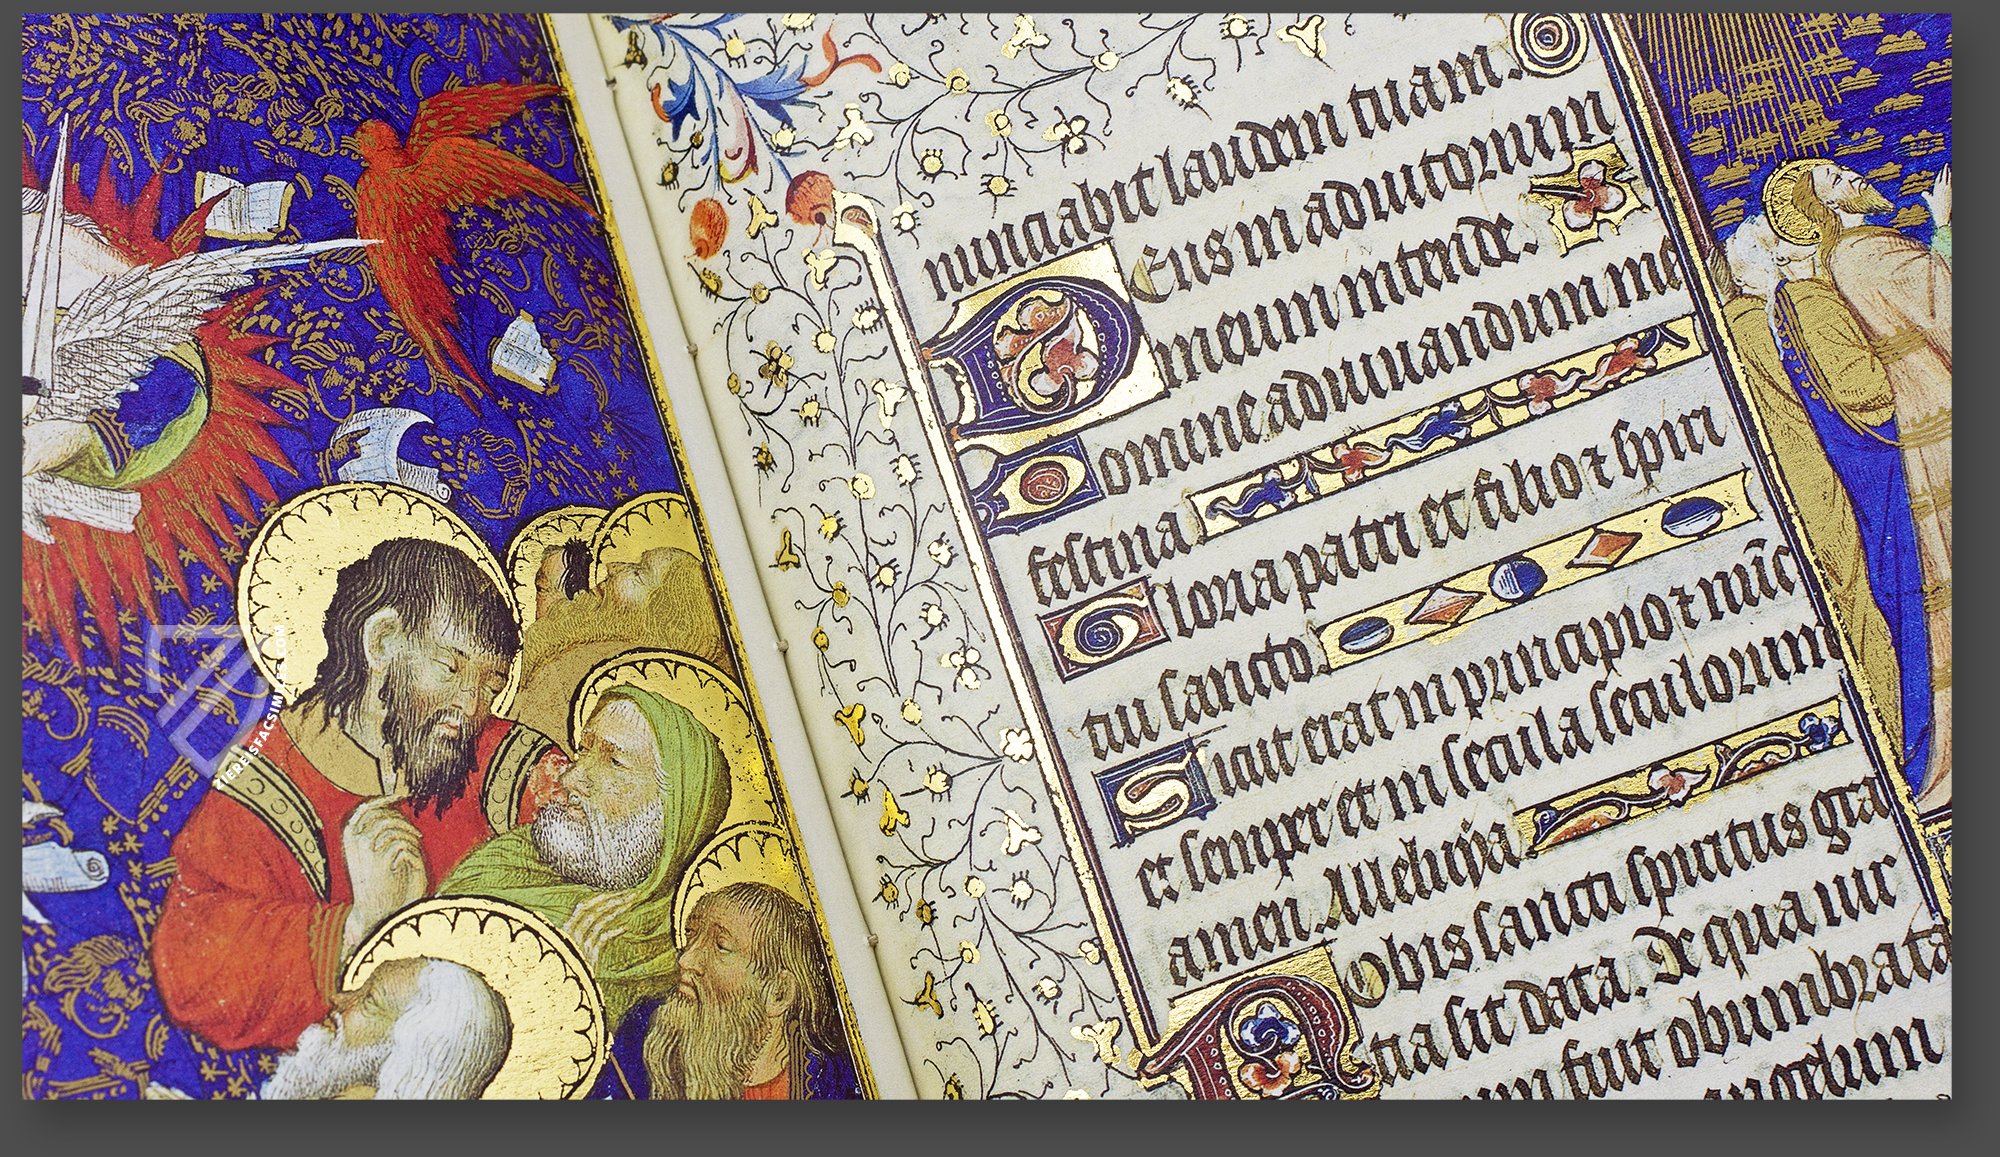 nunciabit laudem tuam.
Deus in adiutorium
meum intende.
Domine ad iuuandum me
festina
Gloria patri et filio ⁊ spiri
tui sancto.
Sicut erat in principio ⁊ nūc
et semper et in secula seculorum
amen. Alleluya
Nobis sancti spiritus gra
tia sit data. De qua uir
fuit obumbrata
angelum
ZIEREISFACSIMILES.COM